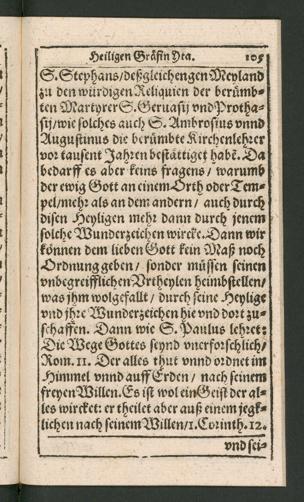 Heiligen Gräfin Ita. 105
S. Stephans/deßgleichen gen Meyland
zu den würdigen Reliquien der berümb-
ten Martyrer S. Geruasij vnd Protha-
sij/wie solches auch S. Ambrosius vnnd
Augustinus die berümbte Kirchenlehrer
vor tausent Jahren bestättiget habẽ. Da
bedarff es aber keins fragens/ warumb
der ewig Gott an einem Orth oder Tem-
pel/mehr als an dem andern/ auch durch
disen Heyligen mehr dann durch jenem
solche Wunderzeichen wircke. Dann wir
können dem lieben Gott kein Maß noch
Ordnung geben/ sonder müssen seinen
vnbegreifflichen Vrtheylen heimbstellen/
was jhm wolgefallt/ durch seine Heylige
vnd jhre Wunderzeichen hie vnd dort zu-
schaffen. Dann wie S. Paulus lehret:
Die Wege Gottes seynd vnerforschlich/
Rom. 11. Der alles thut vnnd ordnet im
Himmel vnnd auff Erden/ nach seinem
freyen Willen. Es ist wol ein Geist der al-
les wircket: er theilet aber auß einem jegk-
lichen nach seinem Willen/1. Corinth. 12.
vnd sei-